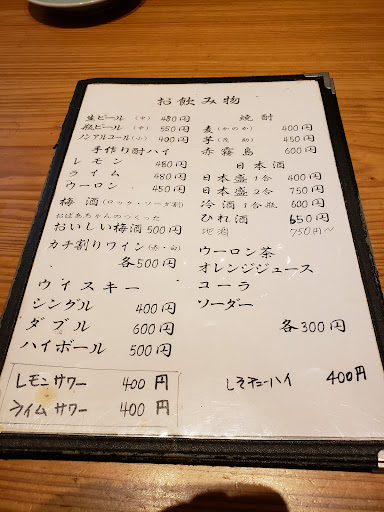 お飲み物
生ビール(中) 480円
瓶ビール(中) 550円
ノンアルコール(小) 400円
手作り酎ハイ
レモン 480円
ライム 480円
ウーロン 450円
梅酒(ロック・ソーダ割)
おばあちゃんのつくった
おいしい梅酒 500円
カチ割りワイン(赤・白)
各500円
ウイスキー
シングル 400円
ダブル 600円
ハイボール 500円
レモンサワー 400円
ライムサワー 400円
焼酎
麦(かのか) 400円
芋 450円
赤霧島 600円
日本酒
日本盛1合 400円
日本盛2合 750円
冷酒1合瓶 600円
ひれ酒 650円
地酒 750円〜
ウーロン茶
オレンジジュース
コーラ
ソーダー
各300円
しそチューハイ 400円